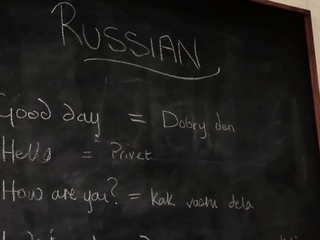 RUSSIAN
Good day = Dobry den
Hello = Privet
How are you? = kak vashi dela